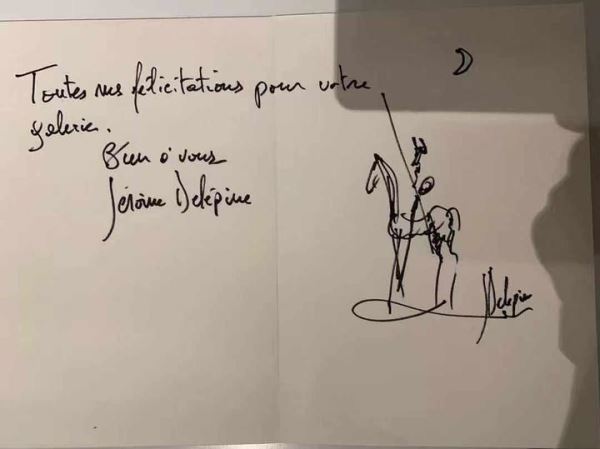 Toutes mes félicitations pour votre
galerie.
Bien à vous
Jérôme Delépine
JDelépine